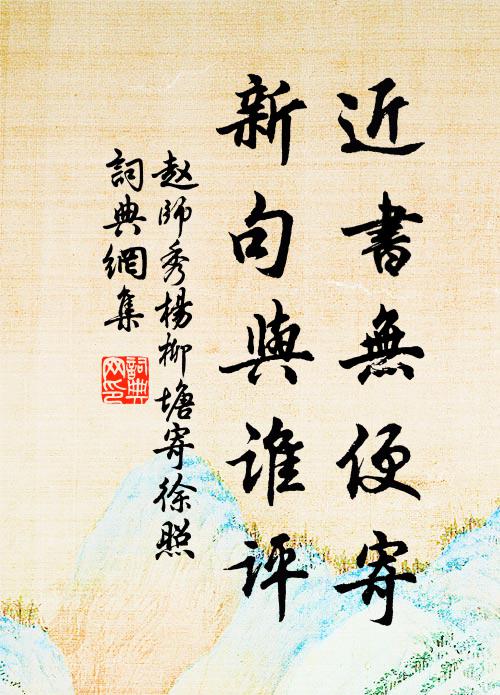 近書無便寄
新句與誰评
赵師秀楊柳塘寄徐照
詞典網集
詞典网印